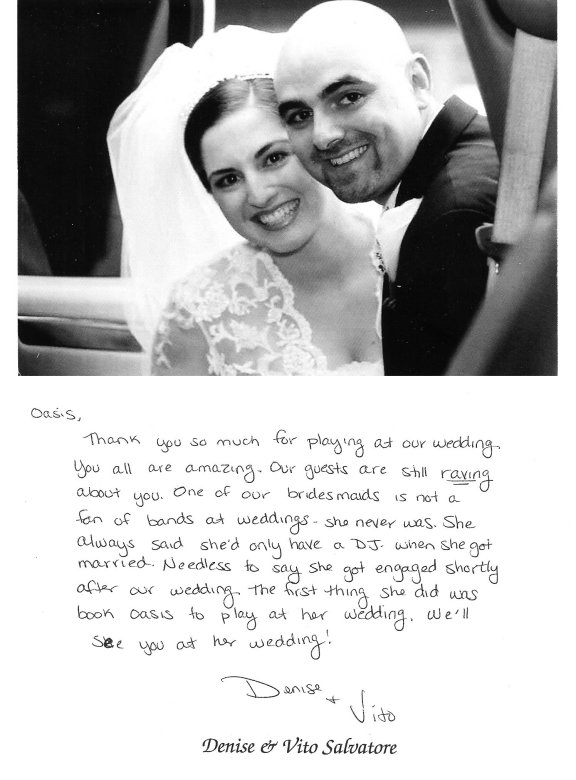 Oasis,
Thank you so much for playing at our wedding.
You all are amazing. Our guests are still raving
about you. One of our bridesmaids is not a
fan of bands at weddings - she never was. She
always said she'd only have a DJ. when she got
married. Needless to say she got engaged shortly
after our wedding. The first thing she did was
book Oasis to play at her wedding. We'll
see you at her wedding!
Denise +
Vito
Denise & Vito Salvatore